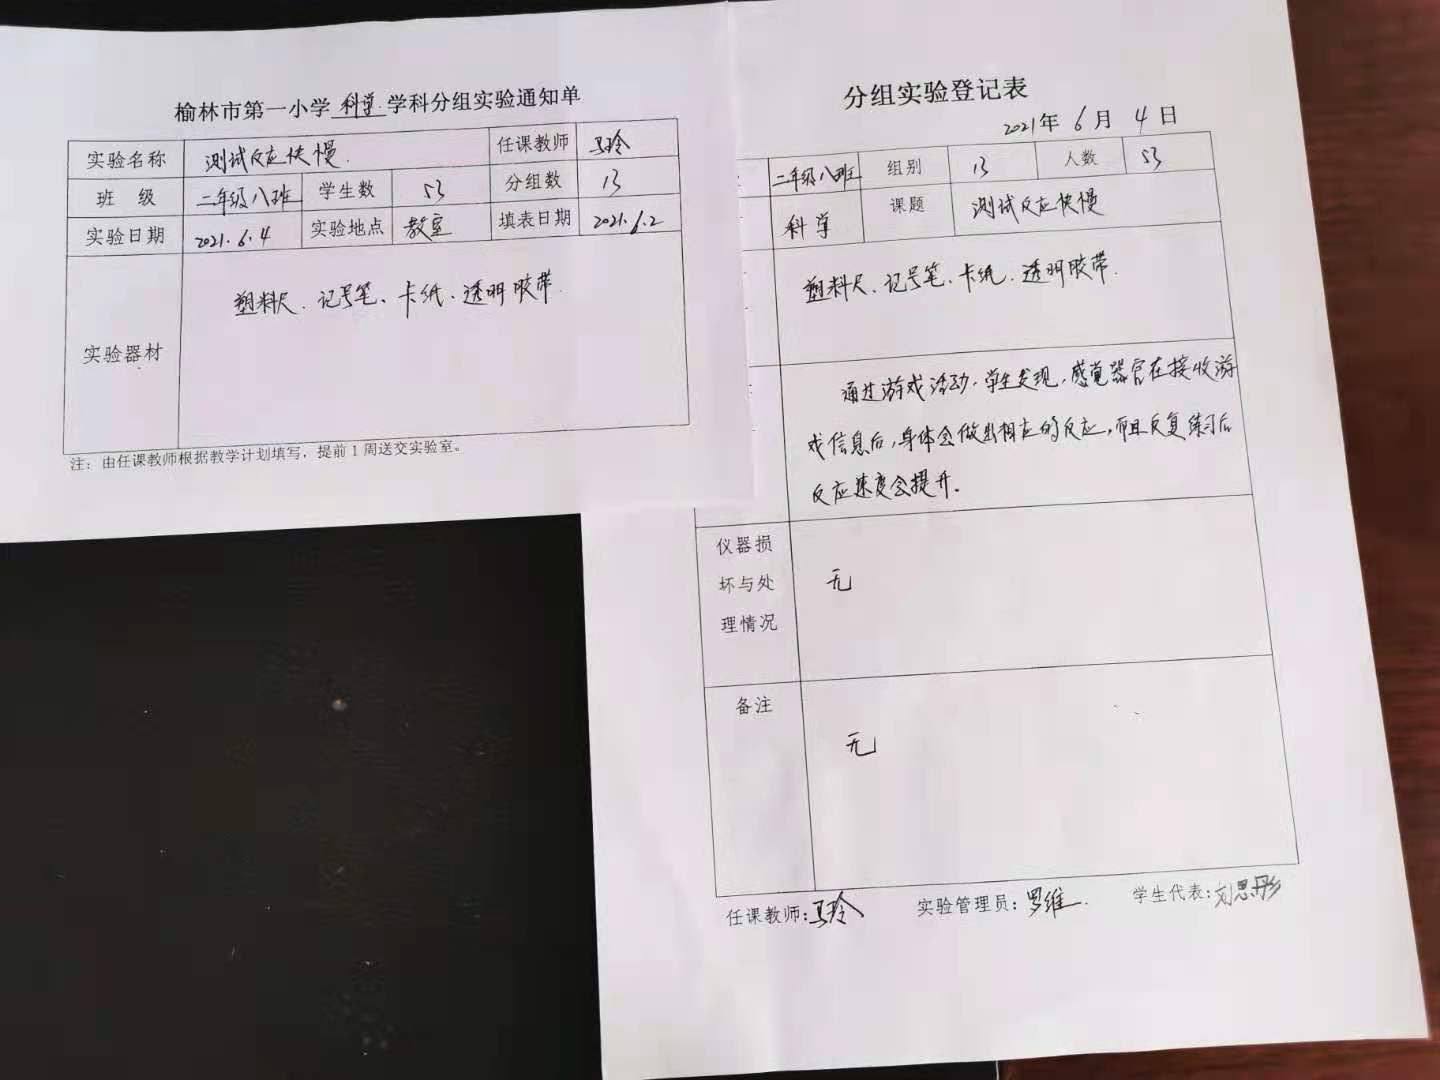 榆林市第一小学 科学 学科分组实验通知单
实验名称 测试反应快慢. 任课教师 马玲
班 级 二年级八班 学生数 53 分组数 13
实验日期 2021.6.4 实验地点 教室 填表日期 2021.6.2
实验器材 塑料尺、记号笔、卡纸、透明胶带.
注：由任课教师根据教学计划填写，提前1周送交实验室。
分组实验登记表
2021年 6月 4日
二年级八班 组别 13 人数 53
科学 课题 测试反应快慢
塑料尺、记号笔、卡纸、透明胶带.
通过游戏活动，学生发现，感觉器官在接收游
戏信息后，身体会做出相应的反应，而且反复练习后
反应速度会提升.
仪器损
坏与处
理情况
无
备注
无
任课教师：马玲 实验管理员：罗维 学生代表：刘思彤